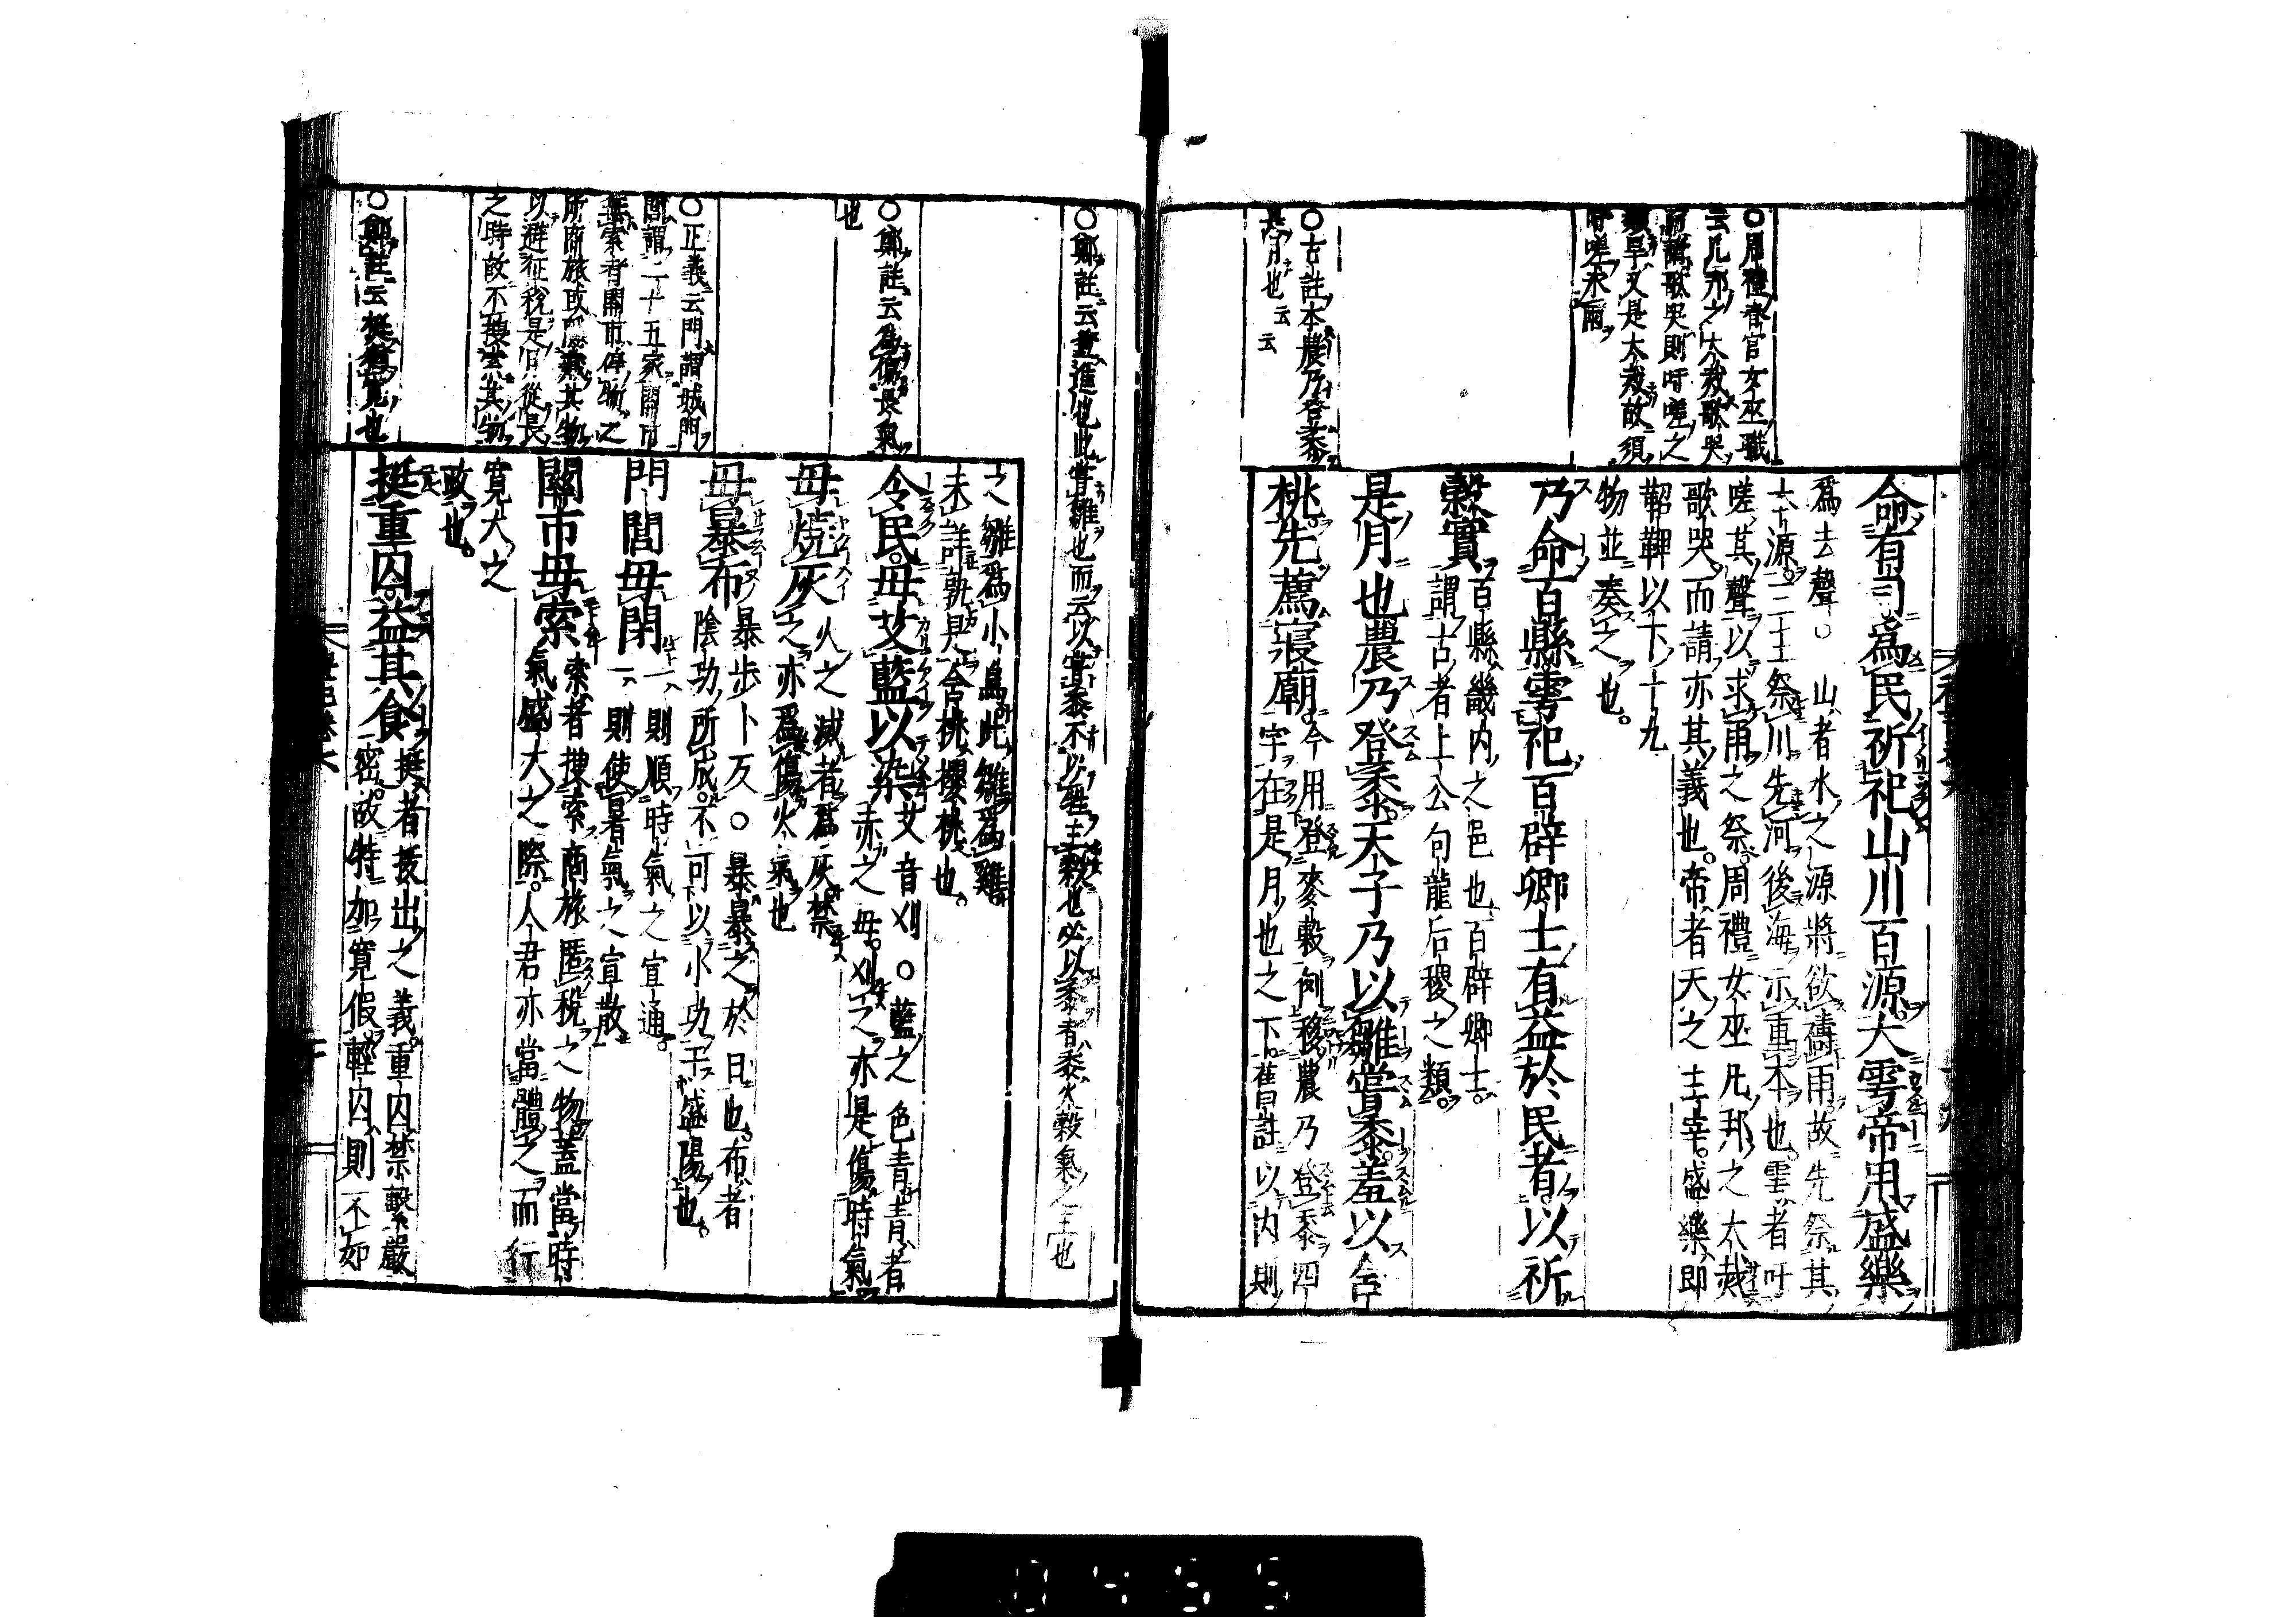 命有司爲民祈祀山川百源大雩帝用盛樂
爲去聲○山者水之源將欲禱雨故先祭其
大源三王祭川先河後海示重本也雩者吁
嗟其聲以求雨之祭周禮女巫凡邦之大烖
歌哭而請亦其義也帝者天之主宰盛樂即
鞀鞞以下十九
物並奏之也
乃命百縣雩祀百辟卿士有益於民者以祈
穀實
百縣畿内之邑也百辟卿士
謂古者上公句龍后稷之類
是月也農乃登黍天子乃以雛嘗黍羞以含
桃先薦寢廟
今用登麥穀例移農乃登黍四
字在是月也之下舊註以内則
○周禮春官女巫職
云凡邦之大烖歌哭
歌哭則吁嗟之
類旱又是大烖故須
吁嗟求雨
○古註本農乃登黍
是月也云云
之雛爲小鳥此雛爲雞
未詳孰是含桃櫻桃也
令民毋艾藍以染
艾音刈○藍之色青青者
赤之母刈之亦是傷時氣
毋燒灰
火之滅者爲灰禁
之亦爲傷火氣也
毋暴布
暴步卜反○暴暴之於日也布者
陰功所成不可以小功干盛陽也
門閭毋閉
一則順時氣之宣通
一則使暑氣之宣散
關市毋索
索者搜索商旅匿稅之物蓋當時
氣盛大之際人君亦當體之而行
寬大之
政也
挺重囚益其食
挺者拔出之義重囚禁繫嚴
密故特加寬假輕囚則不如
○鄭註云登進也此嘗雛也而云以嘗黍不以牲主穀也必以黍者黍火穀氣之主也
○鄭註云爲傷長氣
也
○正義云門謂城門
閭謂二十五家關市
無索者關市停物之
所商旅或隱藏其物
以避征稅是月從長
之時故不搜索其物
○鄭註云挺猶寬也